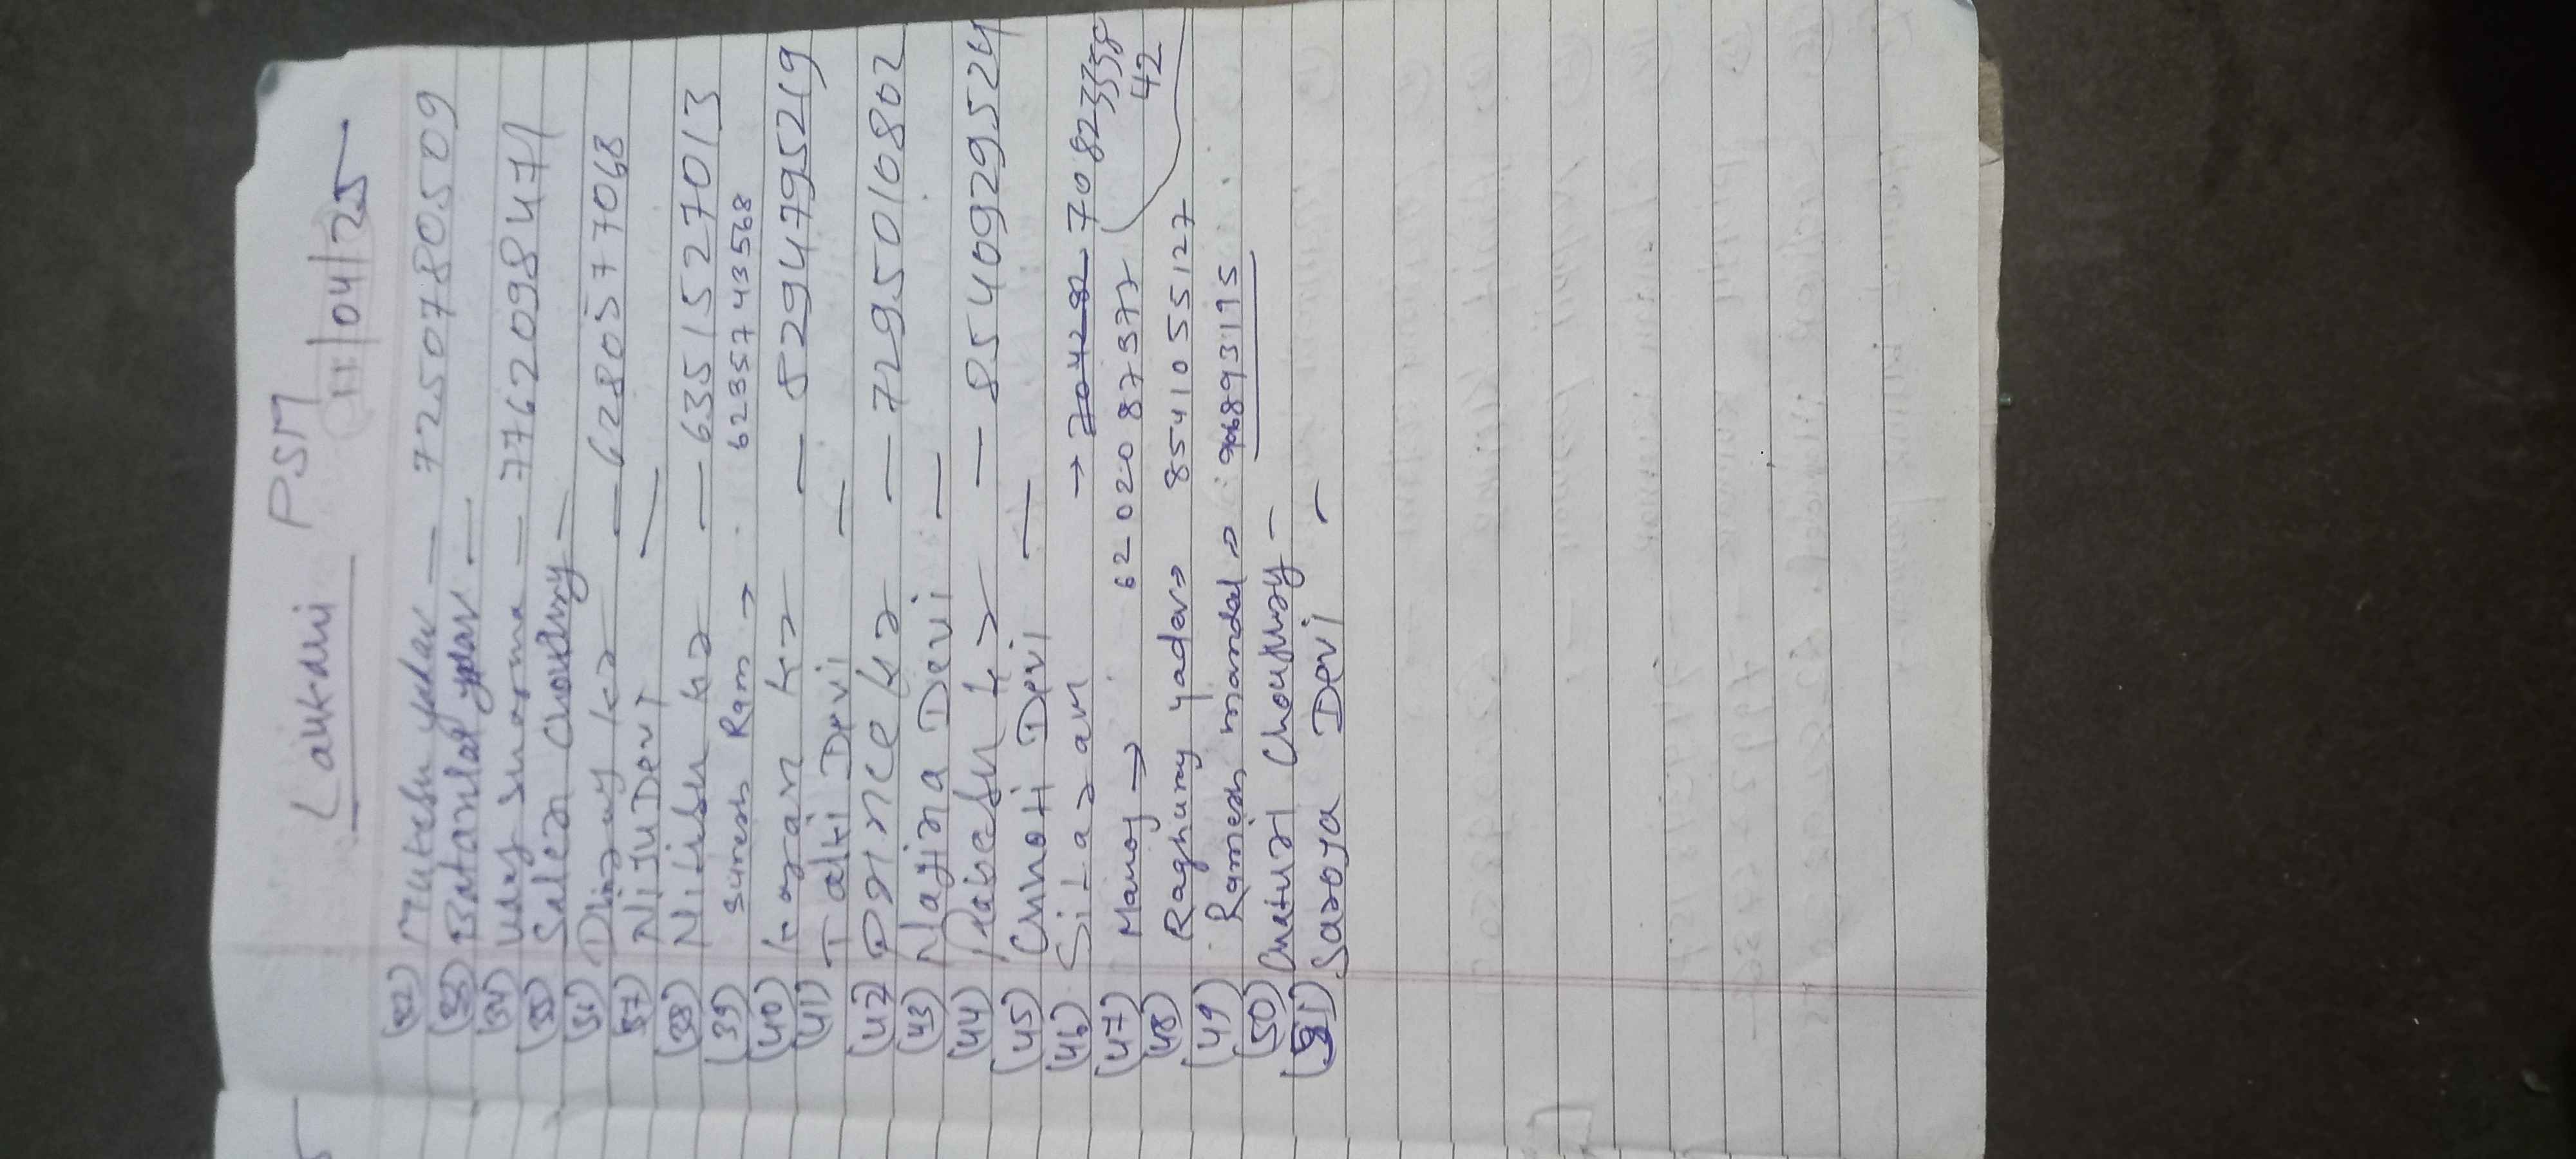 Laukahi PSM
11/04/25
(32) Mukesh yadav — 7250780509
(33) Batanlal yadav —
(34) Uday Sharma — 7762098471
(35) Saleza Choudhry —
(36) Dhizaj kz — 6280577068
(37) Niju Devi —
(38) Nitish kz — 6351527013
(39) Suresh Ram → 6235743568
(40) kozan kz — 8294795219
(41) Talki Devi —
(42) Prince kz — 7295010802
(43) Najina Devi —
(44) kz — 8540929524
(45) Devi —
(46) Sitazam → 70 82
42
(47) Manoj → 6202087377
(48) Raghunay yadav → 8541055127
(49) Ramesh mandal → 906893195
(50) Chatuzi Chouphray —
(51) Sazoya Devi —